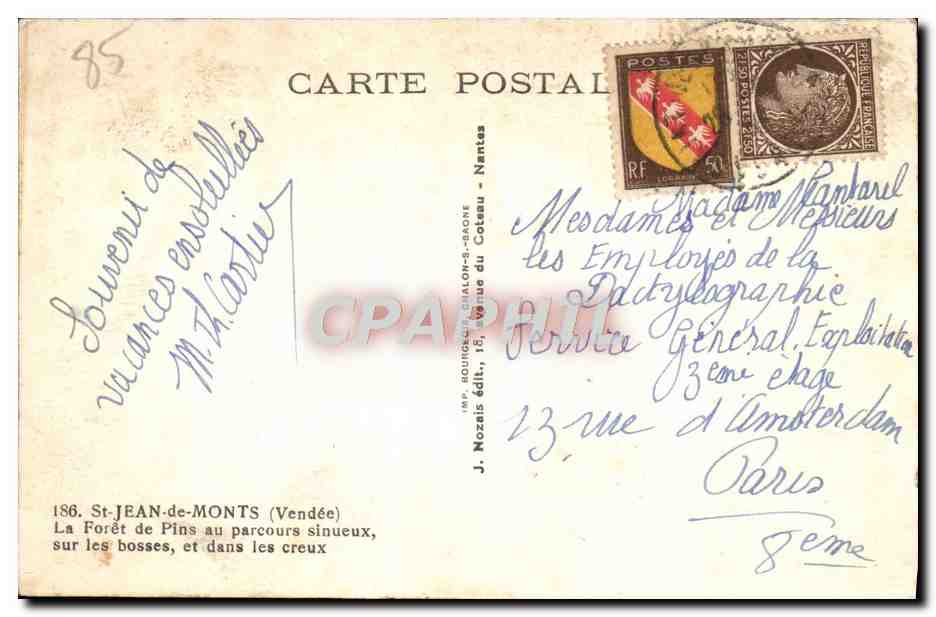 85
CARTE POSTAL
POSTES
RF
50
LORRAINE
2F50 POSTES 2F50
REPUBLIQUE FRANCAISE
Souvenir de
vacances ensoleillées
M. Th. Cartier
IMP. BOURGEOIS, CHALON-S.-SAONE
J. Nozais édit., 18, avenue du Coteau - Nantes
CPAPHIL
Madame
Mesdames et Messieurs
les Employés de la
Dactylographie
Service Général. Exploitation
3ème étage
13 rue d'Amsterdam
Paris
8ème
186. St-JEAN-de-MONTS (Vendée)
La Forêt de Pins au parcours sinueux,
sur les bosses, et dans les creux